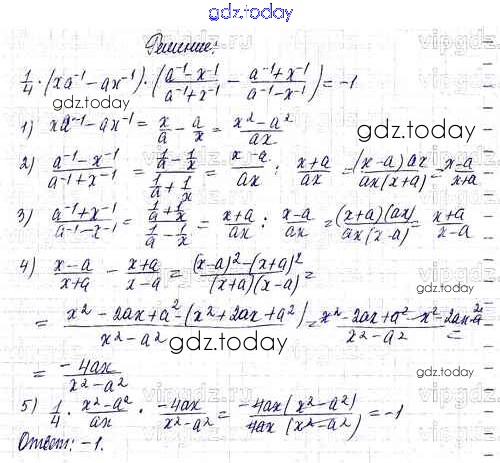 gdz.today
Решение:
1/4 · (xa⁻¹ - ax⁻¹) · ((a⁻¹ - x⁻¹)/(a⁻¹ + x⁻¹) - (a⁻¹ + x⁻¹)/(a⁻¹ - x⁻¹)) = -1
gdz.today
1) xa⁻¹ - ax⁻¹ = x/a - a/x = (x² - a²)/ax
gdz.today
2) (a⁻¹ - x⁻¹)/(a⁻¹ + x⁻¹) = (1/a - 1/x)/(1/a + 1/x) = (x - a)/ax : (x + a)/ax = (x - a)ax/(ax(x + a)) = (x - a)/(x + a)
3) (a⁻¹ + x⁻¹)/(a⁻¹ - x⁻¹) = (1/a + 1/x)/(1/a - 1/x) = (x + a)/ax : (x - a)/ax = (x + a)(ax)/(ax(x - a)) = (x + a)/(x - a)
4) (x - a)/(x + a) - (x + a)/(x - a) = ((x - a)² - (x + a)²)/((x + a)(x - a)) =
= (x² - 2ax + a² - (x² + 2ax + a²))/(x² - a²) = (x² - 2ax + a² - x² - 2ax - a²)/(x² - a²) =
gdz.today
gdz.today
= -4ax/(x² - a²)
5) 1/4 · (x² - a²)/ax · -4ax/(x² - a²) = -4ax(x² - a²)/(4ax(x² - a²)) = -1
Ответ: -1.
gdz.today